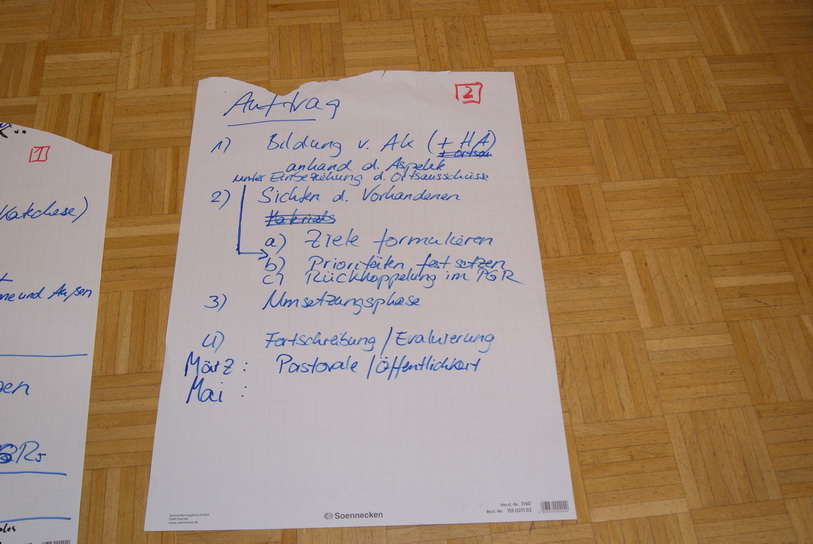 1
Katchese)
ne und Außen
Auftrag
2
1) Bildung v. AK (+ HA)
+ Ortsau
anhand d. Aspekte
unter Einbeziehung d. Ortsausschüsse
2) Sichten d. Vorhandenen
Materials
a) Ziele formulieren
b) Prioritäten festsetzen
c) Rückkoppelung im PGR
3) Umsetzungsphase
4) Fortschreibung / Evaluierung
März : Pastorale / Öffentlichkeit
Mai :
Soennecken